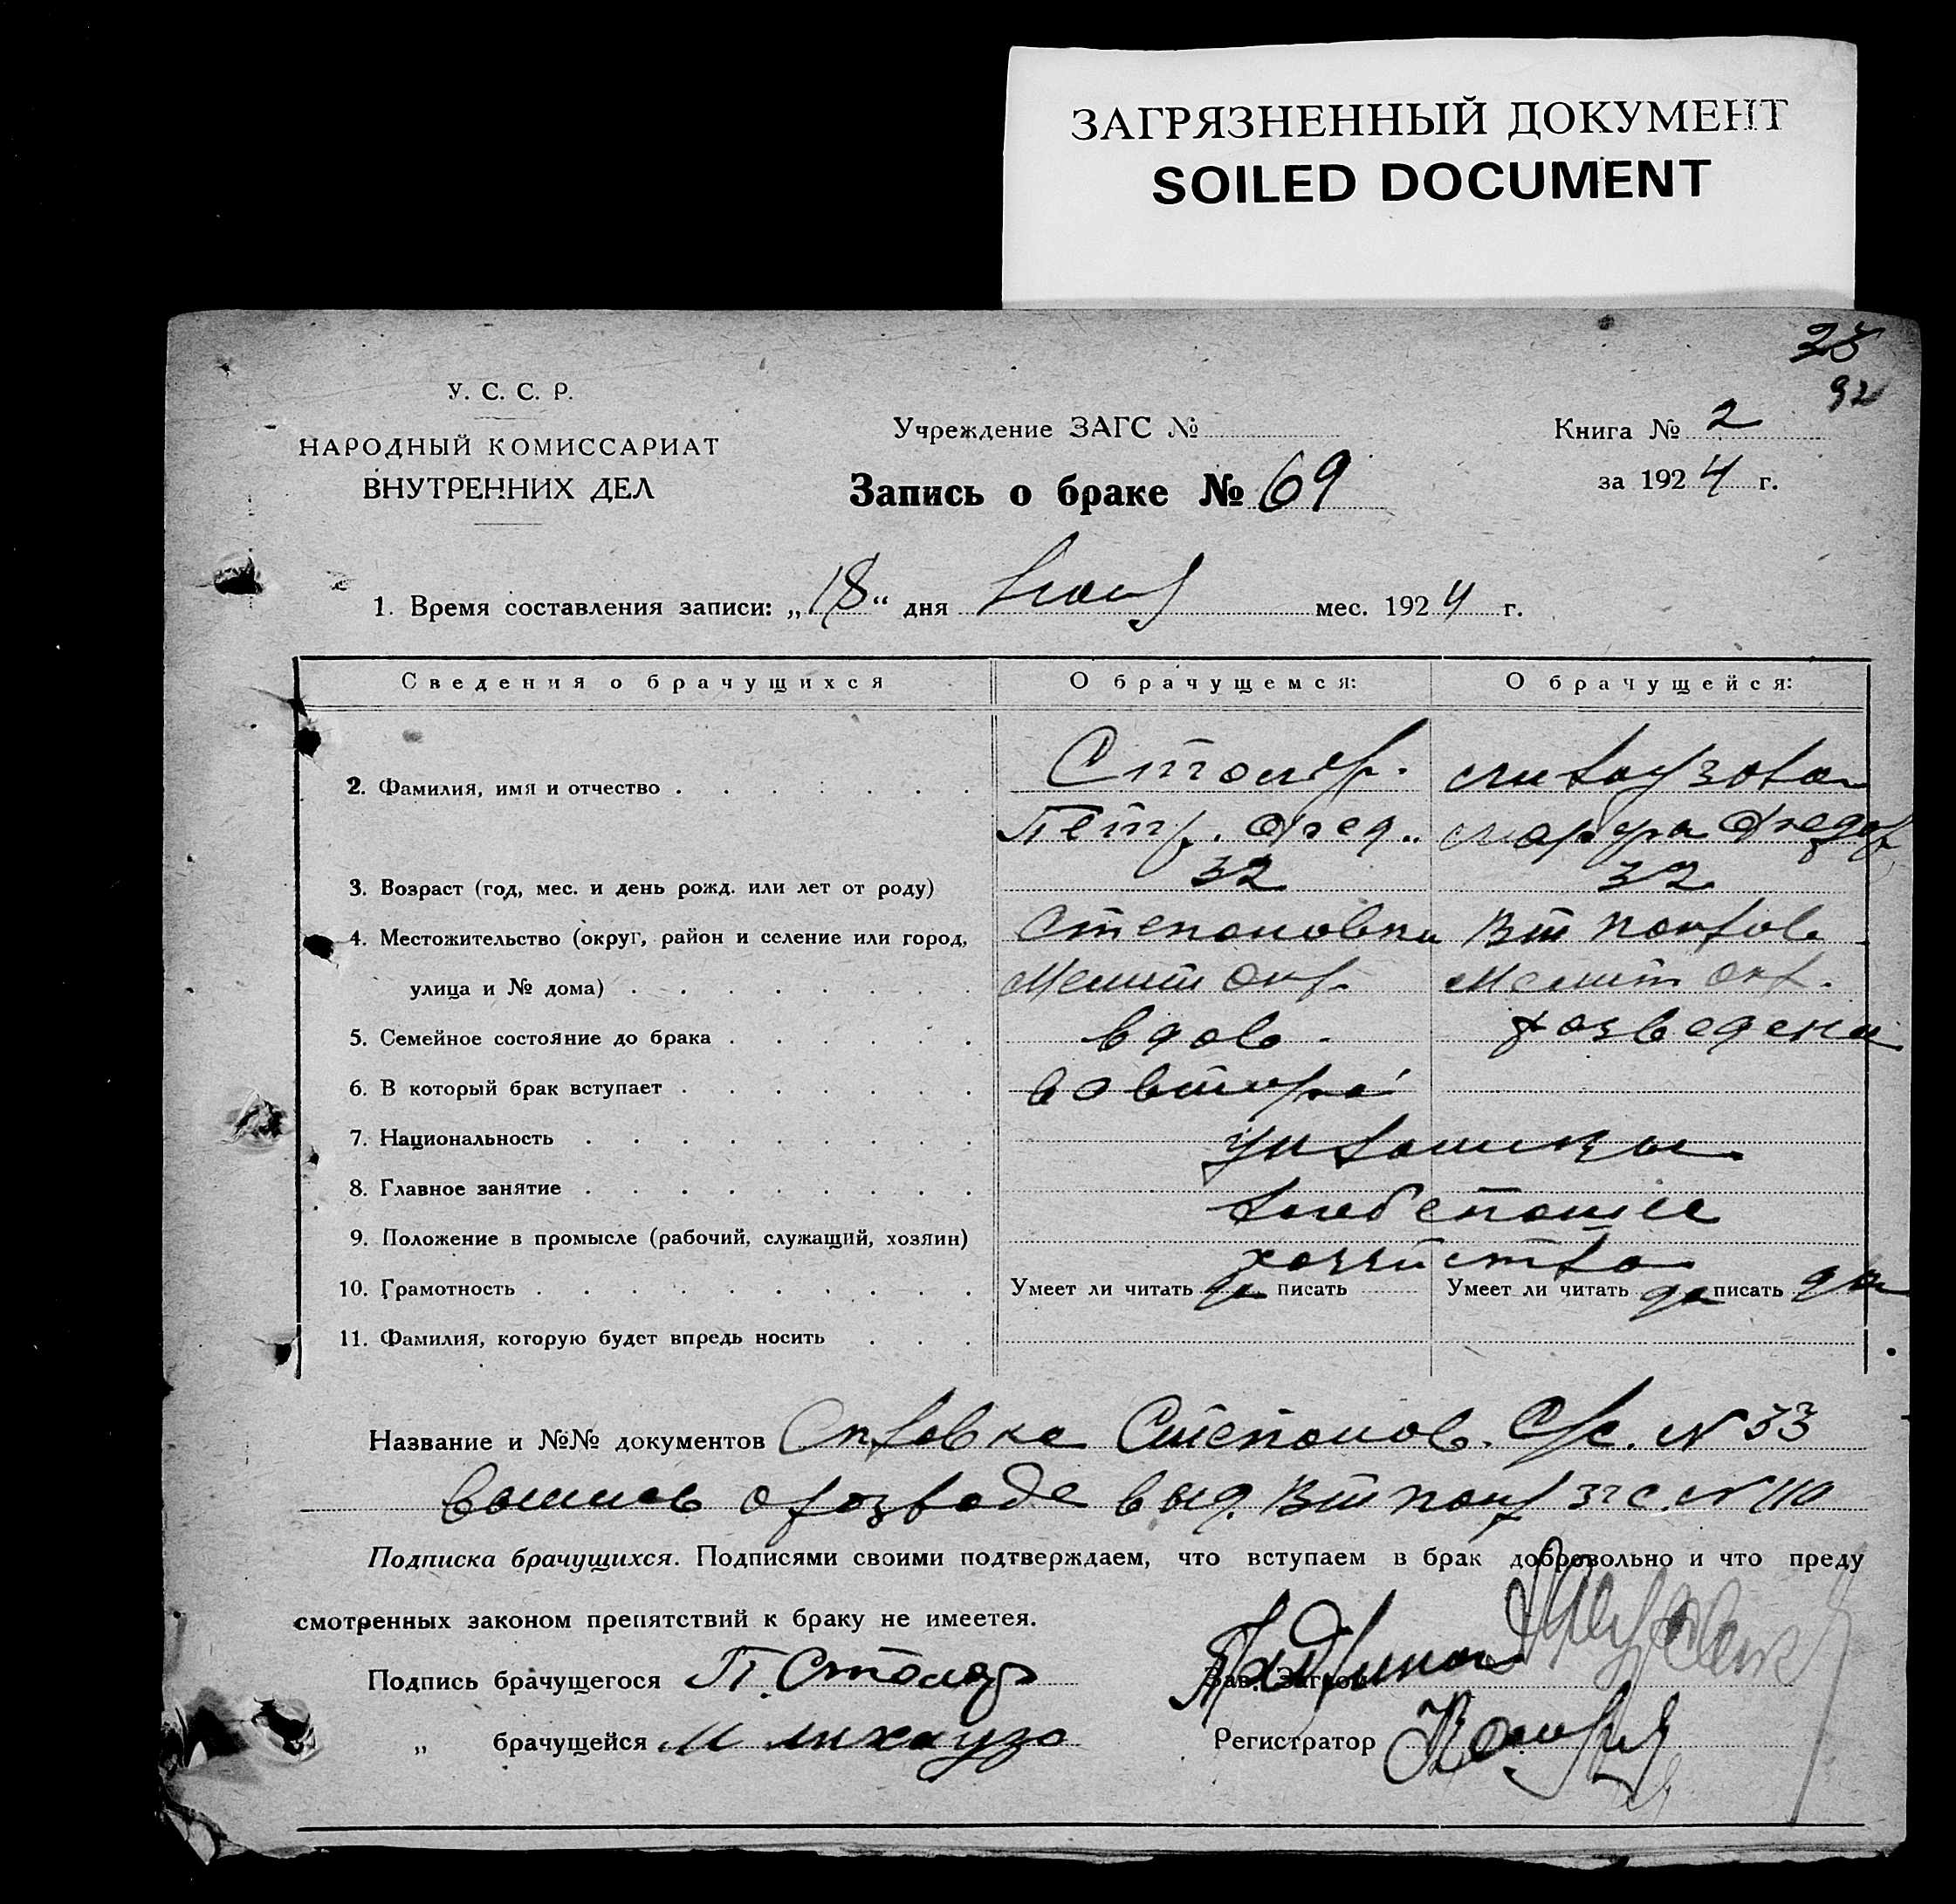 ЗАГРЯЗНЕННЫЙ ДОКУМЕНТ
SOILED DOCUMENT
У. С. С. Р.
НАРОДНЫЙ КОМИССАРИАТ
ВНУТРЕННИХ ДЕЛ
92
Учреждение ЗАГС №
Книга № 2
Запись о браке № 69
за 1924 г.
1. Время составления записи: „18“ дня мес. 1924 г.
Сведения о брачущихся
О брачущемся:
О брачущейся:
2. Фамилия, имя и отчество
Столяр.
Петр. Фед..
Федор
3. Возраст (год, мес. и день рожд. или лет от роду) 32 32
4. Местожительство (округ, район и селение или город,
Степановка
улица и № дома)
Мелит окр.
Мелит окр.
5. Семейное состояние до брака вдов. разведена
6. В который брак вступает во второй
7. Национальность украинцы
8. Главное занятие хлебопашес
9. Положение в промысле (рабочий, служащий, хозяин)
10. Грамотность Умеет ли читать да писать Умеет ли читать да писать да
11. Фамилия, которую будет впредь носить
Название и №№ документов Справка Степанов. С/с. N 33
о разводе выд. N 110
Подписка брачущихся. Подписями своими подтверждаем, что вступаем в брак добровольно и что преду
смотренных законом препятствий к браку не имеетея.
Подпись брачущегося П. Столяр
Зав. Загсом
„ брачущейся М
Регистратор